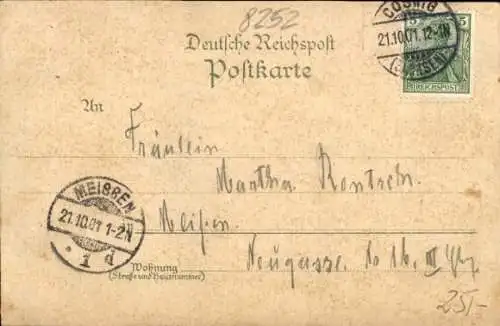 8252
COSWIG
21.10.01. 12-1N
(SACHSEN)
5 5
REICHSPOST
Deutsche Reichspost
Postkarte
An
Fräulein
Martha
Meißen
Neugasse No III
MEISSEN
21.10.01 1-2N
* 1 d
Wohnung
(Straße und Hausnummer)
25,-